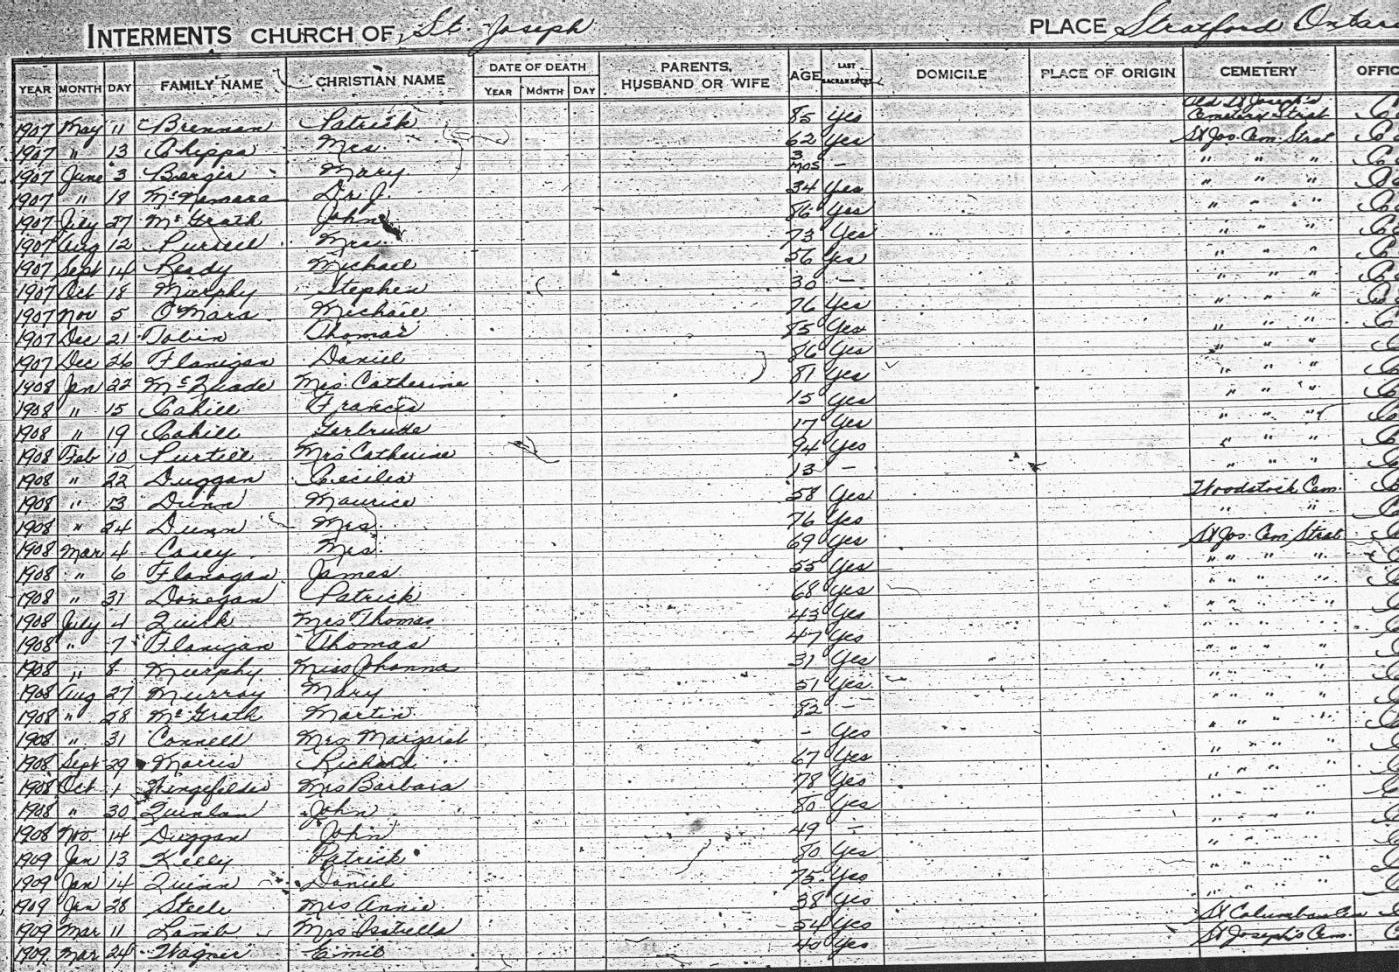 INTERMENTS CHURCH OF St. Joseph PLACE Stratford Ontar
YEAR MONTH DAY FAMILY NAME CHRISTIAN NAME DATE OF DEATH YEAR MONTH DAY PARENTS, HUSBAND OR WIFE AGE LAST SACRAMENTS DOMICILE PLACE OF ORIGIN CEMETERY OFFIC
1907 May 11 Brennan Patrick 85 Yes Old St Joseph's Cemetery Strat
1907 " 13 Chippa Mrs. 62 Yes St Jos. Cem. Strat
1907 June 3 Berger Mary 3 mos — " " "
1907 " 18 McNamara Dr J. 34 Yes " " "
1907 July 27 McGrath John 86 Yes " " "
1907 Aug 12 Purtell Mrs. 73 Yes " " "
1907 Sept 14 Ready Michael 56 Yes " " "
1907 Oct 18 Murphy Stephen 30 — " " "
1907 Nov 5 O'Mara Michael 76 Yes " " "
1907 Dec 21 Tobin Thomas 85 Yes " " "
1907 Dec 26 Flanigan Daniel 86 Yes " " "
1908 Jan 22 McQuade Mrs Catherine 81 Yes " " "
1908 " 15 Cahill Francis 15 Yes " " "
1908 " 19 Cahill Gertrude 17 Yes " " "
1908 Feb 10 Purtell Mrs Catherine 94 Yes " " "
1908 " 22 Duggan Cecilia 13 — " " "
1908 " 23 Dunn Maurice 58 Yes Woodstock Cem.
1908 " 24 Dunn Mrs. 76 Yes " "
1908 Mar 4 Casey Mrs. 69 Yes St Jos. Cem. Strat
1908 " 6 Flanagan James 55 Yes " " "
1908 " 31 Donegan Patrick 68 Yes " " "
1908 July 4 Quirk Mrs Thomas 43 Yes " " "
1908 " 7 Flanigan Thomas 47 Yes " " "
1908 " 8 Murphy Miss Johanna 31 Yes " " "
1908 Aug 27 Murray Mary 51 Yes " " "
1908 " 28 McGrath Martin 82 — " " "
1908 " 31 Connell Mrs Margaret - Yes " " "
1908 Sept 29 Morris Richard 67 Yes " " "
1908 Oct 1 Hingefelder Mrs Barbara 78 Yes " " "
1908 " 30 Quinlan John 80 Yes " " "
1908 No. 14 Duggan John 49 — " " "
1909 Jan 13 Kelly Patrick 80 Yes " " "
1909 Jan 14 Quinn Daniel 75 Yes " " "
1909 Jan 28 Steele Mrs Annie 38 Yes " " "
1909 Mar 11 Lamb Mrs Isabella 54 Yes St Columban Cem
1909 Mar 24 Wagner Emil 40 Yes St Joseph's Cem.